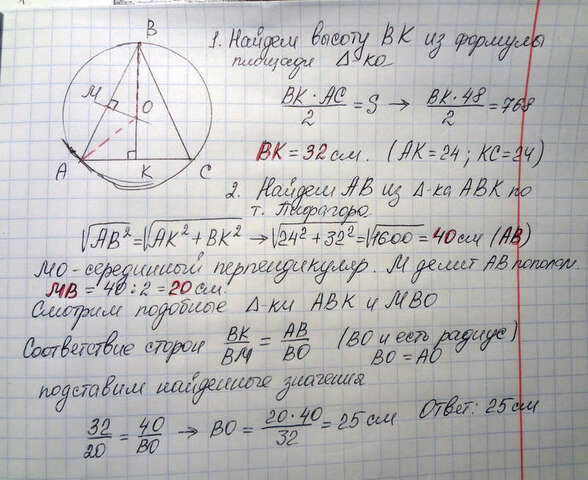 B
M
O
A
K
C
1. Найдем высоту BK из формулы
площади Δ-ка
BK · AC / 2 = S → BK · 48 / 2 = 768
BK = 32 см. (AK = 24; KC = 24)
2. Найдем AB из Δ-ка ABK по
т. Пифагора
√AB² = √AK² + BK² → √24² + 32² = √1600 = 40 см (AB)
MO - серединный перпендикуляр. M делит AB пополам.
MB = 40 : 2 = 20 см.
Смотрим подобные Δ-ки ABK и MBO
Соответствие сторон BK / BM = AB / BO (BO и есть радиус)
BO = AO
подставим найденные значения
32 / 20 = 40 / BO → BO = 20 · 40 / 32 = 25 см Ответ: 25 см